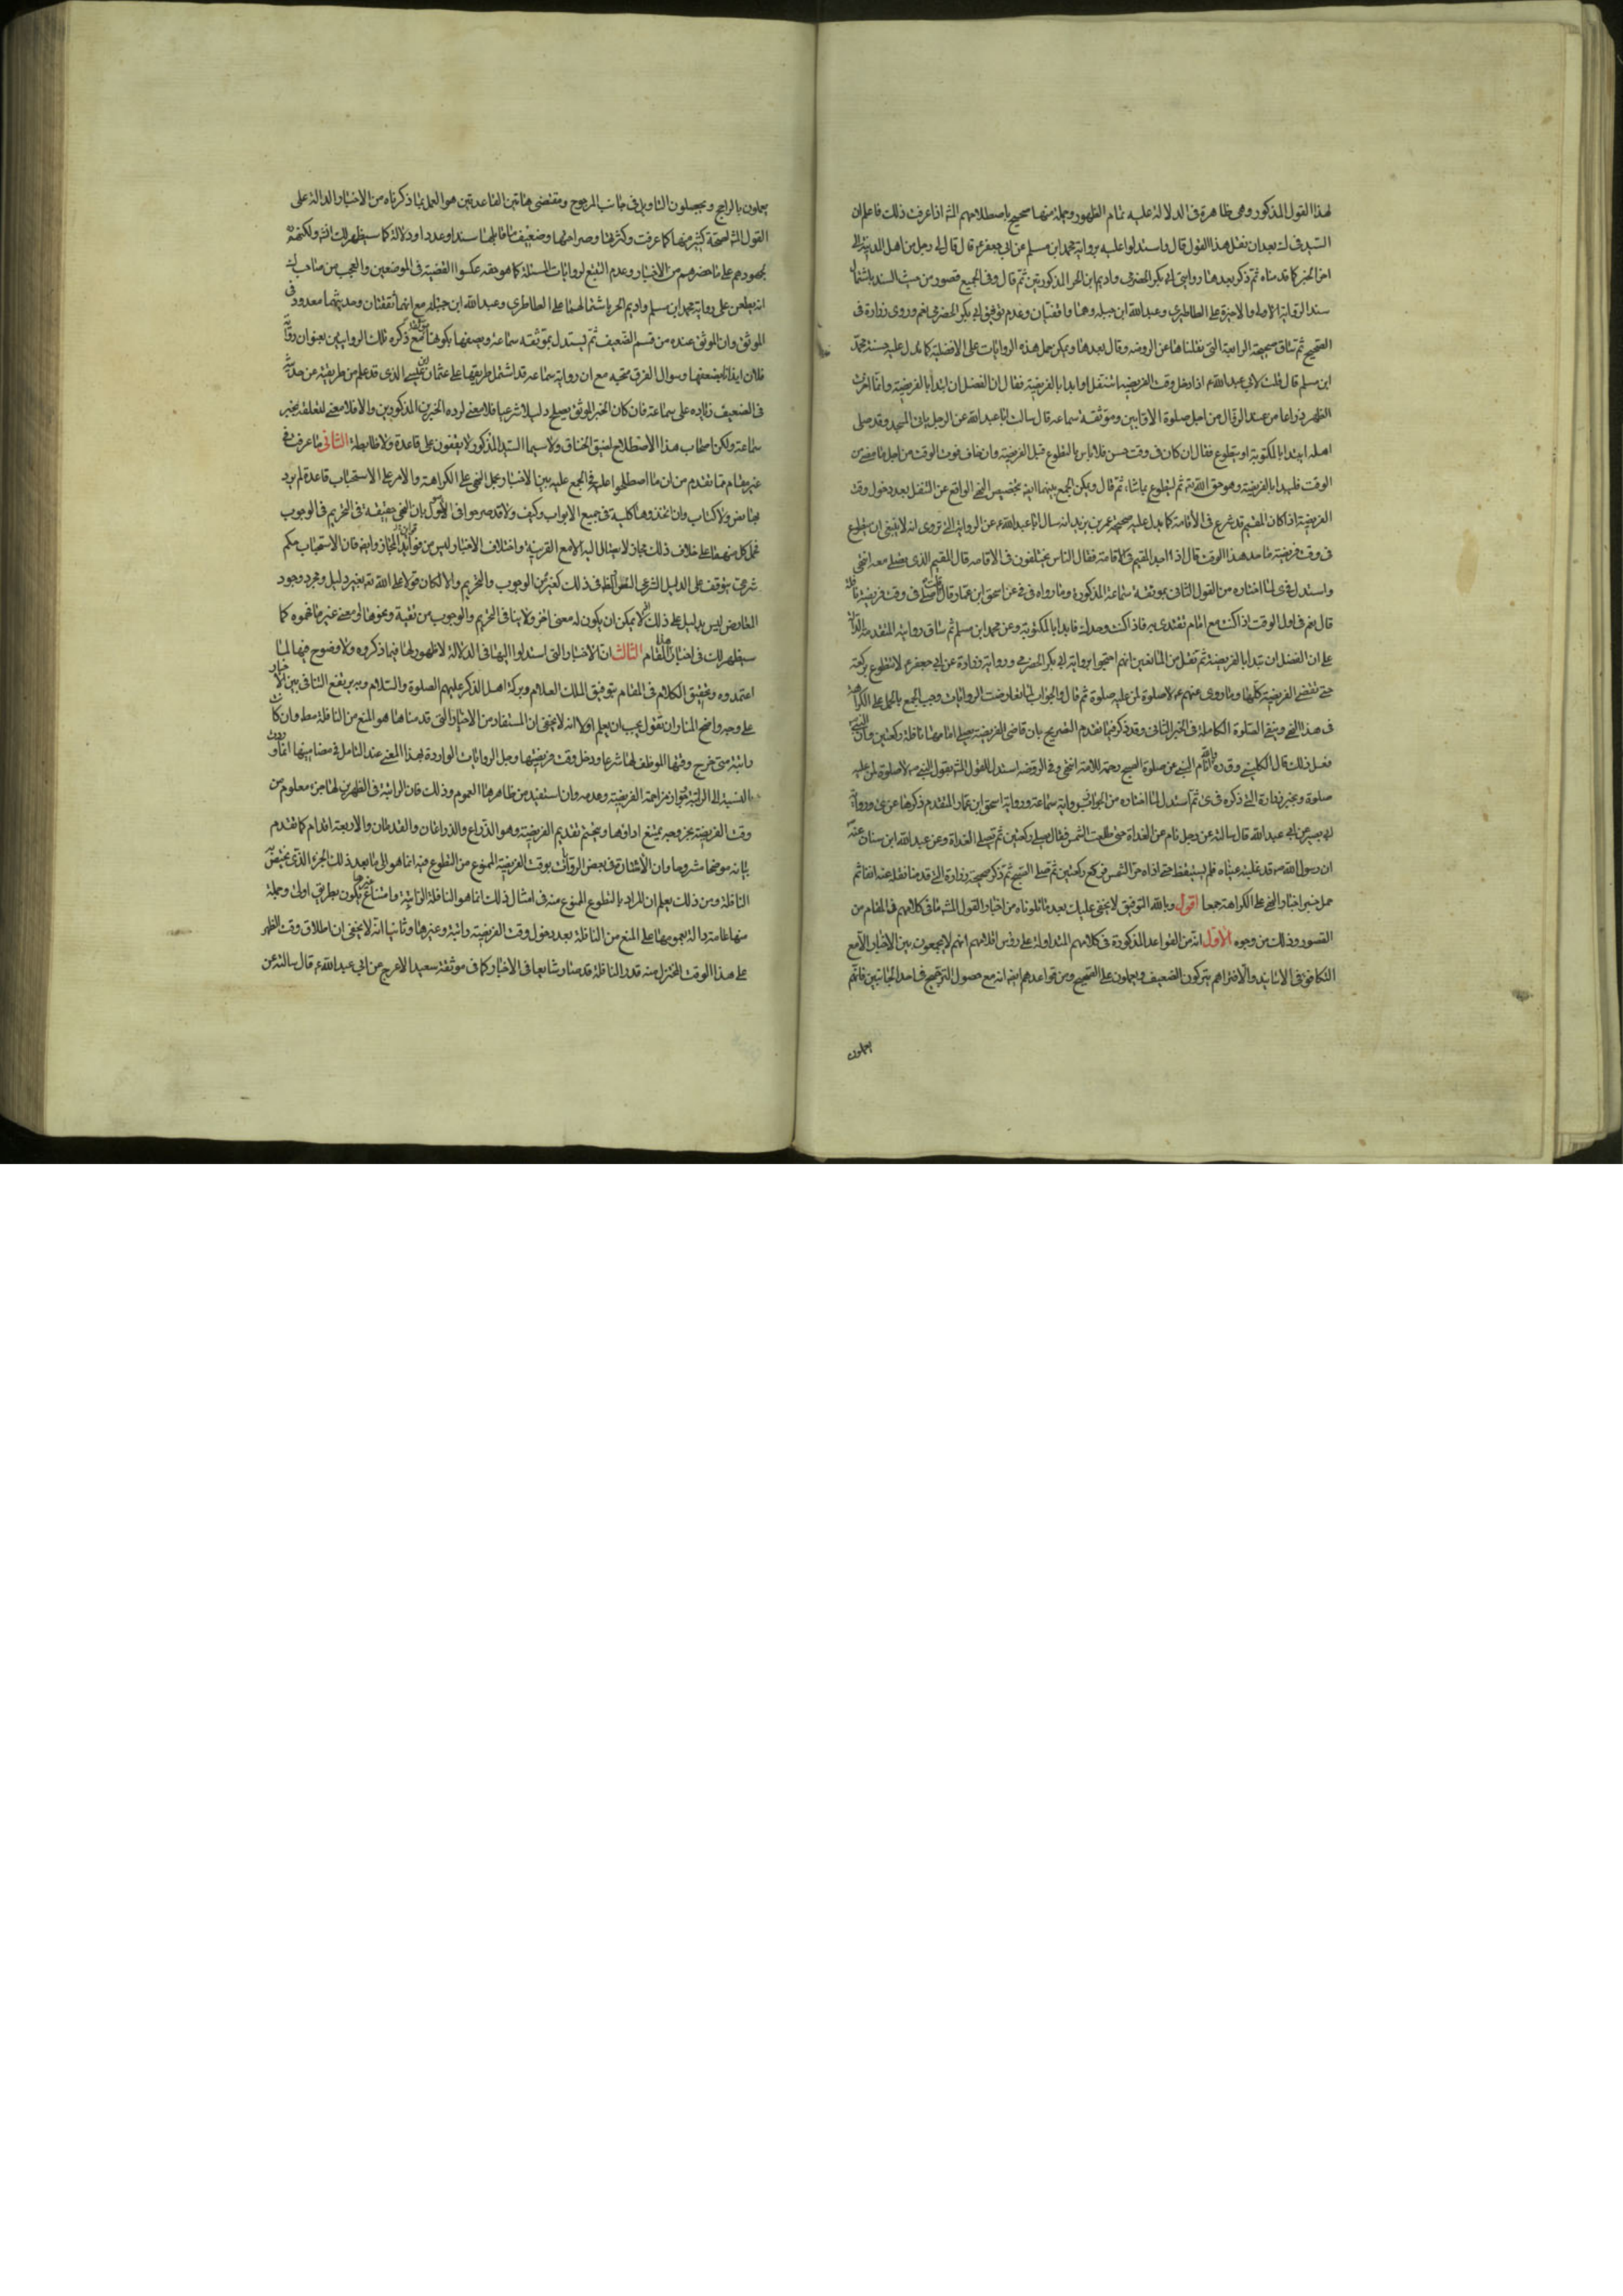 لهذا القول المذكور وهى ظاهرة فى الدلالة عليه تمام الظهور وجملة منها صحيح باصطلاحهم اذا عرفت ذلك فاعلم ان
السيد فى بعد ان نقل هذا القول قال واستدلوا عليه برواية محمد ابن مسلم عن ابى جعفر ع قال قال لى رجل من اهل المدينة الى
اخر الخبر كما قدمناه ثم ذكر بعدها روايتى ابى بكر الحضرمى واديم ابن الحر المذكورتين ثم قال وفى الجميع قصور من حيث السند باشتمال
سند الرواية الاولى والاخيرة على الطاطرى وعبد الله ابن جبلة وهما واقفيان وعدم توثيق ابى بكر الحضرمى نعم وروى زرارة فى
الصحيح ثم ساق صحيحة الرابعة التى نقلناها عن الروضه وقال بعدها ويمكن حمل هذه الروايات على الافضلية كما تدل عليه حسنة محمد
ابن مسلم قال قلت لابى عبد الله ع اذا دخل وقت الفريضه اتنفل او ابدا بالفريضة فقال ان الفضل ان تبدأ بالفريضة وانما اخرت
الظهر ذراعا من عند الزوال من اجل صلوة الاوابين وموثقة سماعه قال سالت ابا عبد الله عن الرجل ياتى المسجد وقد صلى
اهله ايبتدا بالمكتوبة او يتطوع فقال ان كان فى وقت حسن فلا باس بالتطوع قبل الفريضة وان خاف فوت الوقت من اجل ما مضى من
الوقت فليبدا بالفريضة وهو حق الله ثم ليتطوع بما شاء ثم قال ويمكن الجمع بينهما ايضا بتخصيص النهى الواقع عن التنفل بعد دخول وقت
الفريضة اذا كان المقيم قد شرع فى الاقامة كما يدل عليه صحيحة عمر بن يزيد انه سال ابا عبد الله ع عن الرواية التى تروى انه لا ينبغى ان يتطوع
فى وقت فريضة ما حد هذا الوقت قال اذا اخذ المقيم فى الاقامة فقال الناس يختلفون فى الاقامه قال المقيم الذى يصلى معه انتهى
واستدل فى لما اختاره من القول الثانى بموثقة سماعة المذكورة وما رواه فى عن اسحق ابن عمار قال قلت اصلى فى وقت فريضة نافلة
قال نعم فى اول الوقت اذا كنت مع امام تقتدى به فاذا كنت وحدك فابدا بالمكتوبة وعن محمد ابن مسلم ثم ساق رواية المتقدمة الدالة
على ان الفضل ان تبدا بالفريضة ثم نقل من المانعين انهم احتجوا برواية ابى بكر الحضرمى ورواية زرارة عن ابى جعفر ع لا تتطوع بركعة
حتى تقضى الفريضة كلها وما روى عنهم ع لا صلوة لمن عليه صلوة ثم قال والجواب لما تعارضت الروايات وجب الجمع بالحمل على الكراهة
فى هذا النهى وبنفى الصلوة الكاملة فى الخبر الثانى وقد ذكر فيما تقدم التصريح بان قاضى الفريضة يصلى امامها نافلة ركعتين وان النبى
فعل ذلك قال الكلينى وقده انام الله النبى عن صلوة الصبح رحمة للامة انتهى وفى الروضه استدل للقول بقول النبى ص لا صلوة لمن عليه
صلوة وبخبر زرارة الذى ذكره فى ثم استدل لما اختاره من الجواز برواية سماعة ورواية اسحق ابن عمار المتقدم ذكرها ورواية
ابى بصير عن ابى عبد الله قال سالته عن رجل نام عن الغداة حتى طلعت الشمس فقال يصلى ركعتين ثم يصلى الغداة وعن عبد الله ابن سنان عنه
ان رسول الله ص قد غلبته عيناه فلم يستيقظ حتى اذاه حر الشمس فركع ركعتين ثم صلى الصبح ثم ذكر صحيحة زرارة التى قدمنا نقله عنه انفا ثم
حمل خبر اخبار النهى على الكراهة جمعا اقول وبالله التوفيق لا يخفى عليك بعد ما تلوناه من اخبار القول ما فى كلامهم فى المقام من
القصور وذلك من وجوه الاول انه من القواعد المذكورة فى كلامهم المتداولة على رؤس اقلامهم انهم لا يجمعون بين الاخبار الا مع
التكافؤ فى الاسانيد والا فتراهم يتركون الضعيف ويعملون على الصحيح ومن قواعدهم ايضا انه مع حصول الترجيح فى احد الجانبين فانهم
يعملون
يعملون بالراجح ويجعلون التاويل فى جانب المرجوح ومقتضى هاتين القاعدتين هو العمل بما ذكرناه من الاخبار الدالة على
القول لصحة كثير منها كما عرفت وكثرتها وصراحتها وضعف ما قابلها سندا وعددا ودلالة كما سيظهر لك ولكنهم
لجمودهم على ما حضرهم من الاخبار وعدم التتبع لروايات المسئلة كما هو حقه عكسوا القضية فى الموضعين والعجب من صاحب
انه يطعن على رواية محمد ابن مسلم واديم الحر باشتمالهما على الطاطرى وعبد الله ابن جبلة مع انهما ثقتان وحديثهما معدود فى
الموثق وان الموثق عنده من قسم الضعيف ثم يستدل بموثقه سماعة ويصفها بكونها مع ذكره تلك الروايتين بعنوان رواية
فلان ايذانا بضعفها وسوال الفرق متجه مع ان رواية سماعه قد اشتمل طريقها على عثمان بن عيسى الذى قد علم من طريقته عد حديثه
فى الضعيف زياده على سماعة فان كان الخبر الموثق يصلح دليلا شرعيا فلا معنى لرده الخبرين المذكورين والا فلا معنى لتعلقه بخبر
سماعة ولكن اصحاب هذا الاصطلاح لضيق الخناق ولا سيما السيد المذكور لا يقفون على قاعدة ولا ضابطة الثانى ما عرفت فى
غير مقام مما تقدم من ان ما اصطلحوا عليه فى الجمع عليه بين الاخبار بحمل النهى على الكراهة والامر على الاستحباب قاعدة لم يرد
بها نص ولا كتاب وان اتخذوها كلية فى جميع الابواب وكيف ولا قد صرحوا فى الاصول بان النهى حقيقة فى التحريم فى الوجوب
فحمل كل منهما على خلاف ذلك مجاز لا يصار اليه الا مع القرينة واختلاف الاخبار ليس من قراين المجاز وايضا فان الاستحباب حكم
شرعى يتوقف على الدليل الشرعى الظاهر فى ذلك كغيره من الوجوب والتحريم والا لكان قولا على الله بغير دليل ومجرد وجود
المعارض ليس بدليل على ذلك اذ يمكن ان يكون له معنى اخر ولا ينافى التحريم والوجوب من تقية ونحوها او معنى غير ما فهموه كما
سيظهر لك فى اخبار هذا المقام الثالث ان الاخبار التى استدلوا اليها فى الدلالة لا ظهور لها فيما ذكروه ولا وضوح فيها لما
اعتمدوه وتحقيق الكلام فى المقام بتوفيق الملك العلام وبركة اهل الذكر عليهم الصلوة والسلام وبه يرتفع التنافى بين الاخبار
على وجه واضح المنار ان نقول يجب ان يعلم اولا انه لا يخفى ان المستفاد من الاخبار التى قدمناها هو المنع من النافلة مط وان كانت
راتبة متى خرج وقتها الموظف لها شرعا ودخل وقت فريضتها وجل الروايات الواردة لهذا المعنى عند التامل فى مضامينها انما ورد
بالنسبة الى الراتبة بجواز مزاحمة الفريضة وعدمه وان استفيد من ظاهرها العموم وذلك فان الراتبة فى الظهرين لها حد معلوم من
وقت الفريضة بخروجه يمتنع اداؤها ويتحتم تقديم الفريضة وهو الذراع والذراعان والقدمان والاربعة اقدام كما تقدم
بيانه موضحا مشروحا وان الاشارة فى بعض الروايات بوقت الفريضة الممنوع من التطوع فيه انما هو الى ما بعد ذلك الجزء الذى تختص به
النافلة ومن ذلك يعلم ان المراد بالتطوع الممنوع منه فى امثال ذلك انما هو النافلة الراتبة وامتناع غيرها يكون بطريق اولى وجملة
منها عامة دالة بعمومها على المنع من النافلة بعد دخول وقت الفريضة راتبة وغيرها وثانيا انه لا يخفى ان اطلاق وقت الظهر
على هذا الوقت المختزل منه قدر النافلة قد صار شايعا فى الاخبار كما فى موثقة سعيد الاعرج عن ابى عبد الله ع قال سالته عن